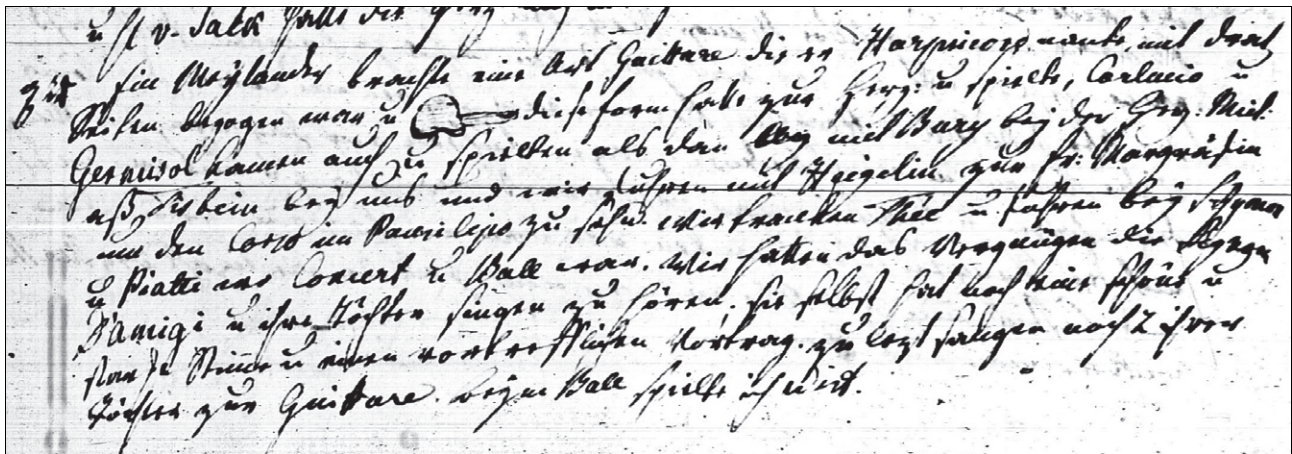 u H v. Sack hatte die
Ein Meylander brachte eine Art Guittare die er Harpicorp nante, mit drat
Seiten bezogen war u diese form hatte zur Herz: u spielte, Corlacio u
Germisol kamen auch u spielten als dan mit Bury bey der Herz: Mit:
aß Fisbein bey uns und wir fuhren mit Heigelin zur Fr: Margräfin
um den Corso im Pausilipo zu sehn. wir trancken Thée u fuhren bey
u Piatti wo Concert u Ball war. Wir hatten das Vergnügen die
Damigi u ihre Töchter singen zu hören, sie selbst hat noch eine schöne u
starke Stimme u einen vortrefflichen Vortrag. zu lezt sangen noch 2 ihrer
Töchter zur Guittare. beym Ball spielte ich mit.